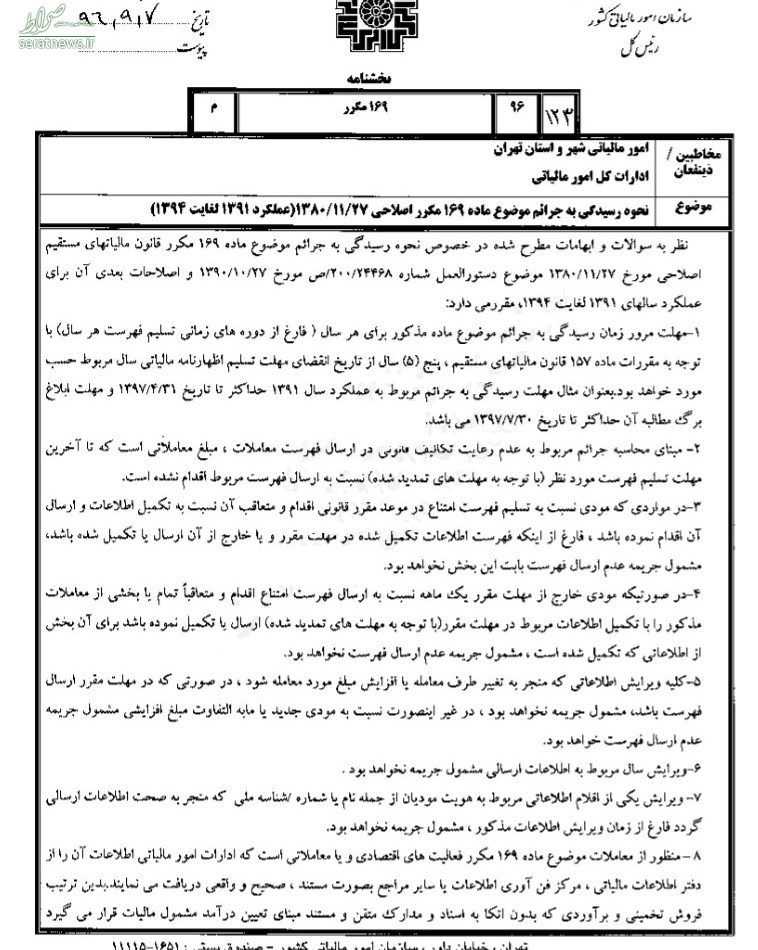 سازمان امور مالیاتی کشور
رئیس کل
تاریخ ۹۶٫۹٫۷
پیوست
صراط
seratnews.ir
بخشنامه
۱۲۳
۹۶
۱۶۹ مکرر
م
مخاطبین / ذینفعان
امور مالیاتی شهر و استان تهران
ادارات کل امور مالیاتی
موضوع
نحوه رسیدگی به جرائم موضوع ماده ۱۶۹ مکرر اصلاحی ۱۳۸۰/۱۱/۲۷(عملکرد ۱۳۹۱ لغایت ۱۳۹۴)
نظر به سوالات و ابهامات مطرح شده در خصوص نحوه رسیدگی به جرائم موضوع ماده ۱۶۹ مکرر قانون مالیاتهای مستقیم
اصلاحی مورخ ۱۳۸۰/۱۱/۲۷ موضوع دستورالعمل شماره ۲۰۰/۲۴۴۶۸/ص مورخ ۱۳۹۰/۱۰/۲۷ و اصلاحات بعدی آن برای
عملکرد سالهای ۱۳۹۱ لغایت ۱۳۹۴، مقررمی دارد:
۱-مهلت مرور زمان رسیدگی به جرائم موضوع ماده مذکور برای هر سال ( فارغ از دوره های زمانی تسلیم فهرست هر سال) با
توجه به مقررات ماده ۱۵۷ قانون مالیاتهای مستقیم ، پنج (۵) سال از تاریخ انقضای مهلت تسلیم اظهارنامه مالیاتی سال مربوط حسب
مورد خواهد بود.بعنوان مثال مهلت رسیدگی به جرائم مربوط به عملکرد سال ۱۳۹۱ حداکثر تا تاریخ ۱۳۹۷/۴/۳۱ و مهلت ابلاغ
برگ مطالبه آن حداکثر تا تاریخ ۱۳۹۷/۷/۳۰ می باشد.
۲- مبنای محاسبه جرائم مربوط به عدم رعایت تکالیف قانونی در ارسال فهرست معاملات ، مبلغ معاملاتی است که تا آخرین
مهلت تسلیم فهرست مورد نظر (با توجه به مهلت های تمدید شده) نسبت به ارسال فهرست مربوط اقدام نشده است.
۳-در مواردی که مودی نسبت به تسلیم فهرست امتناع در موعد مقرر قانونی اقدام و متعاقب آن نسبت به تکمیل اطلاعات و ارسال
آن اقدام نموده باشد ، فارغ از اینکه فهرست اطلاعات تکمیل شده در مهلت مقرر و یا خارج از آن ارسال یا تکمیل شده باشد،
مشمول جریمه عدم ارسال فهرست بابت این بخش نخواهد بود.
۴-در صورتیکه مودی خارج از مهلت مقرر یک ماهه نسبت به ارسال فهرست امتناع اقدام و متعاقباً تمام یا بخشی از معاملات
مذکور را با تکمیل اطلاعات مربوط در مهلت مقرر(با توجه به مهلت های تمدید شده) ارسال یا تکمیل نموده باشد برای آن بخش
از اطلاعاتی که تکمیل شده است ، مشمول جریمه عدم ارسال فهرست نخواهد بود.
۵-کلیه ویرایش اطلاعاتی که منجر به تغییر طرف معامله یا افزایش مبلغ مورد معامله شود ، در صورتی که در مهلت مقرر ارسال
فهرست باشد، مشمول جریمه نخواهد بود ، در غیر اینصورت نسبت به مودی جدید یا مابه التفاوت مبلغ افزایشی مشمول جریمه
عدم ارسال فهرست خواهد بود.
۶-ویرایش سال مربوط به اطلاعات ارسالی مشمول جریمه نخواهد بود .
۷- ویرایش یکی از اقلام اطلاعاتی مربوط به هویت مودیان از جمله نام یا شماره /شناسه ملی که منجر به صحت اطلاعات ارسالی
گردد فارغ از زمان ویرایش اطلاعات مذکور ، مشمول جریمه نخواهد بود.
۸ - منظور از معاملات موضوع ماده ۱۶۹ مکرر فعالیت های اقتصادی و یا معاملاتی است که ادارات امور مالیاتی اطلاعات آن را از
دفتر اطلاعات مالیاتی ، مرکز فن آوری اطلاعات یا سایر مراجع بصورت مستند ، صحیح و واقعی دریافت می نمایند.بدین ترتیب
فروش تخمینی و برآوردی که بدون اتکا به اسناد و مدارک متقن و مستند مبنای تعیین درآمد مشمول مالیات قرار می گیرد
تهران ، خیابان داور ، سازمان امور مالیاتی کشور - صندوق پستی : ۱۶۵۱-۱۱۱۱۵